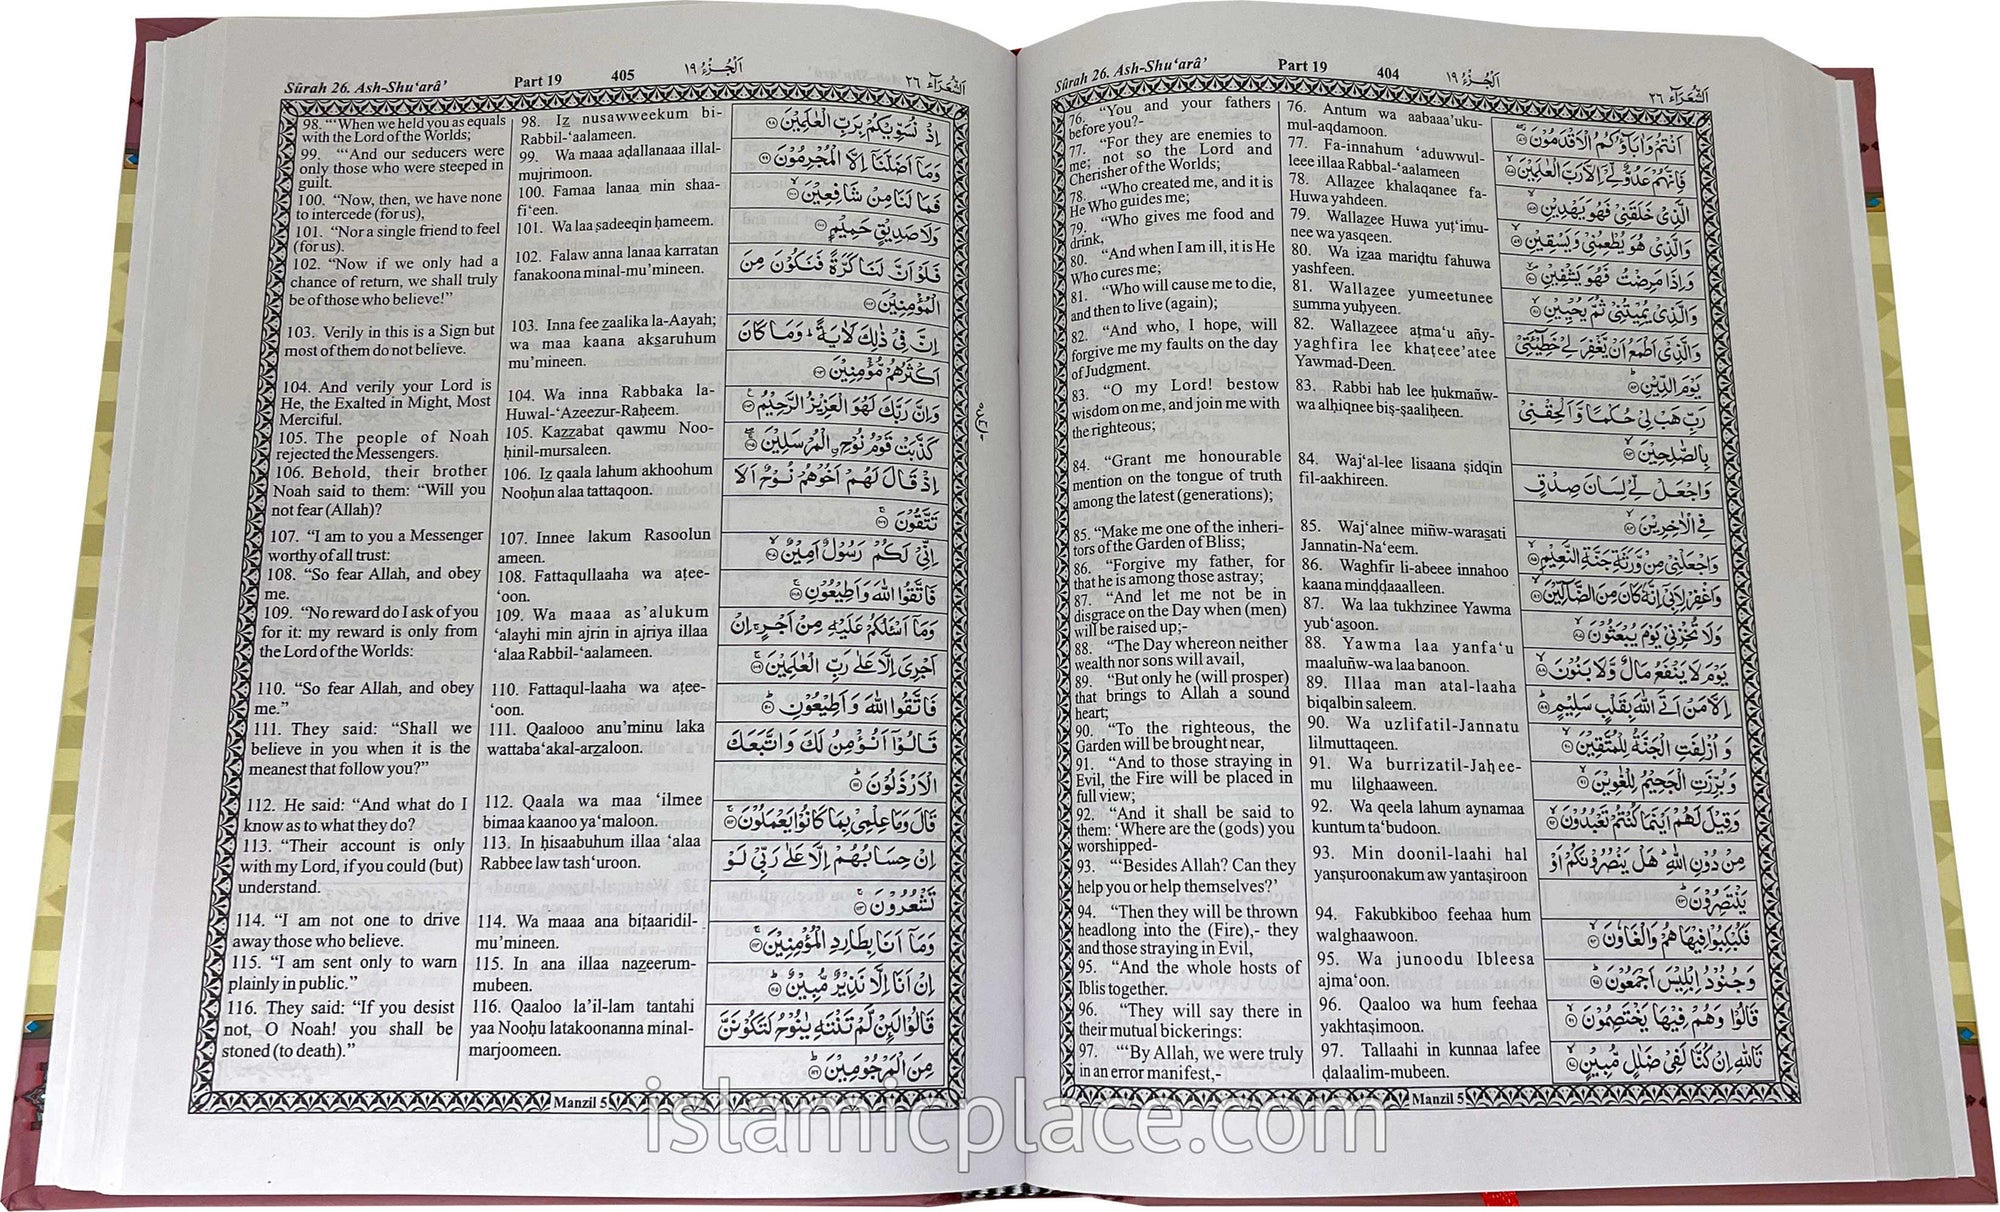 Sûrah 26. Ash-Shu‘arâ’ Part 19 404 اَلْجُزْءُ ١٩ اَلشُّعَرَآء ٢٦
76. “You and your fathers
before you?-
77. “For they are enemies to
me; not so the Lord and
Cherisher of the Worlds;
78. “Who created me, and it is
He Who guides me;
79. “Who gives me food and
drink,
80. “And when I am ill, it is He
Who cures me;
81. “Who will cause me to die,
and then to live (again);
82. “And who, I hope, will
forgive me my faults on the day
of Judgment.
83. “O my Lord! bestow
wisdom on me, and join me with
the righteous;
84. “Grant me honourable
mention on the tongue of truth
among the latest (generations);
85. “Make me one of the inheri-
tors of the Garden of Bliss;
86. “Forgive my father, for
that he is among those astray;
87. “And let me not be in
disgrace on the Day when (men)
will be raised up;-
88. “The Day whereon neither
wealth nor sons will avail,
89. “But only he (will prosper)
that brings to Allah a sound
heart;
90. “To the righteous, the
Garden will be brought near,
91. “And to those straying in
Evil, the Fire will be placed in
full view;
92. “And it shall be said to
them: ‘Where are the (gods) you
worshipped-
93. “‘Besides Allah? Can they
help you or help themselves?’
94. “Then they will be thrown
headlong into the (Fire),- they
and those straying in Evil,
95. “And the whole hosts of
Iblis together.
96. “They will say there in
their mutual bickerings:
97. “‘By Allah, we were truly
in an error manifest,-
76. Antum wa aabaaa’uku-
mul-aqdamoon.
77. Fa-innahum ‘aduwwul-
leee illaa Rabbal-‘aalameen
78. Allazee khalaqanee fa-
Huwa yahdeen.
79. Wallazee Huwa yuṭ‘imu-
nee wa yasqeen.
80. Wa izaa mariḍtu fahuwa
yashfeen.
81. Wallazee yumeetunee
summa yuḥyeen.
82. Wallazeee aṭma‘u añy-
yaghfira lee khaṭeee’atee
Yawmad-Deen.
83. Rabbi hab lee ḥukmañw-
wa alḥiqnee biṣ-ṣaaliḥeen.
84. Waj‘al-lee lisaana ṣidqin
fil-aakhireen.
85. Waj‘alnee miñw-warasati
Jannatin-Na‘eem.
86. Waghfir li-abeee innahoo
kaana minḍḍaaalleen.
87. Wa laa tukhzinee Yawma
yub‘asoon.
88. Yawma laa yanfa‘u
maaluñw-wa laa banoon.
89. Illaa man atal-laaha
biqalbin saleem.
90. Wa uzlifatil-Jannatu
lilmuttaqeen.
91. Wa burrizatil-Jaḥee-
mu lilghaaween.
92. Wa qeela lahum aynamaa
kuntum ta‘budoon.
93. Min doonil-laahi hal
yanṣuroonakum aw yantaṣiroon
94. Fakubkiboo feehaa hum
walghaawoon.
95. Wa junoodu Ibleesa
ajma‘oon.
96. Qaaloo wa hum feehaa
yakhtaṣimoon.
97. Tallaahi in kunnaa lafee
ḍalaalim-mubeen.
اَنْتُمْ وَاٰبَآؤُكُمُ الْاَقْدَمُوْنَ ۞
فَاِنَّهُمْ عَدُوٌّ لِّيْٓ اِلَّا رَبَّ الْعٰلَمِيْنَ ۞
الَّذِيْ خَلَقَنِيْ فَهُوَ يَهْدِيْنِ ۞
وَالَّذِيْ هُوَ يُطْعِمُنِيْ وَيَسْقِيْنِ ۞
وَاِذَا مَرِضْتُ فَهُوَ يَشْفِيْنِ ۞
وَالَّذِيْ يُمِيْتُنِيْ ثُمَّ يُحْيِيْنِ ۞
وَالَّذِيْٓ اَطْمَعُ اَنْ يَّغْفِرَ لِيْ خَطِيْٓئَتِيْ
يَوْمَ الدِّيْنِ ۞
رَبِّ هَبْ لِيْ حُكْمًا وَّاَلْحِقْنِيْ
بِالصّٰلِحِيْنَ ۞
وَاجْعَلْ لِّيْ لِسَانَ صِدْقٍ
فِي الْاٰخِرِيْنَ ۞
وَاجْعَلْنِيْ مِنْ وَّرَثَةِ جَنَّةِ النَّعِيْمِ ۞
وَاغْفِرْ لِاَبِيْٓ اِنَّهٗ كَانَ مِنَ الضَّآلِّيْنَ ۞
وَلَا تُخْزِنِيْ يَوْمَ يُبْعَثُوْنَ ۞
يَوْمَ لَا يَنْفَعُ مَالٌ وَّلَا بَنُوْنَ ۞
اِلَّا مَنْ اَتَى اللّٰهَ بِقَلْبٍ سَلِيْمٍ ۞
وَاُزْلِفَتِ الْجَنَّةُ لِلْمُتَّقِيْنَ ۞
وَبُرِّزَتِ الْجَحِيْمُ لِلْغٰوِيْنَ ۞
وَقِيْلَ لَهُمْ اَيْنَمَا كُنْتُمْ تَعْبُدُوْنَ ۞
مِنْ دُوْنِ اللّٰهِ هَلْ يَنْصُرُوْنَكُمْ اَوْ
يَنْتَصِرُوْنَ ۞
فَكُبْكِبُوْا فِيْهَا هُمْ وَالْغَاوٗنَ ۞
وَجُنُوْدُ اِبْلِيْسَ اَجْمَعُوْنَ ۞
قَالُوْا وَهُمْ فِيْهَا يَخْتَصِمُوْنَ ۞
تَاللّٰهِ اِنْ كُنَّا لَفِيْ ضَلٰلٍ مُّبِيْنٍ ۞
Manzil 5
Sûrah 26. Ash-Shu‘arâ’ Part 19 405 اَلْجُزْءُ ١٩ اَلشُّعَرَآء ٢٦
98. “‘When we held you as equals
with the Lord of the Worlds;
99. “‘And our seducers were
only those who were steeped in
guilt.
100. “Now, then, we have none
to intercede (for us),
101. “Nor a single friend to feel
(for us).
102. “Now if we only had a
chance of return, we shall truly
be of those who believe!”
103. Verily in this is a Sign but
most of them do not believe.
104. And verily your Lord is
He, the Exalted in Might, Most
Merciful.
105. The people of Noah
rejected the Messengers.
106. Behold, their brother
Noah said to them: “Will you
not fear (Allah)?
107. “I am to you a Messenger
worthy of all trust:
108. “So fear Allah, and obey
me.
109. “No reward do I ask of you
for it: my reward is only from
the Lord of the Worlds:
110. “So fear Allah, and obey
me.”
111. They said: “Shall we
believe in you when it is the
meanest that follow you?”
112. He said: “And what do I
know as to what they do?
113. “Their account is only
with my Lord, if you could (but)
understand.
114. “I am not one to drive
away those who believe.
115. “I am sent only to warn
plainly in public.”
116. They said: “If you desist
not, O Noah! you shall be
stoned (to death).”
98. Iz nusawweekum bi-
Rabbil-‘aalameen.
99. Wa maaa aḍallanaaa illal-
mujrimoon.
100. Famaa lanaa min shaa-
fi‘een.
101. Wa laa ṣadeeqin ḥameem.
102. Falaw anna lanaa karratan
fanakoona minal-mu’mineen.
103. Inna fee zaalika la-Aayah;
wa maa kaana aksaruhum
mu’mineen.
104. Wa inna Rabbaka la-
Huwal-‘Azeezur-Raḥeem.
105. Kazzabat qawmu Noo-
ḥinil-mursaleen.
106. Iz qaala lahum akhoohum
Nooḥun alaa tattaqoon.
107. Innee lakum Rasoolun
ameen.
108. Fattaqullaaha wa aṭee-
‘oon.
109. Wa maaa as’alukum
‘alayhi min ajrin in ajriya illaa
‘alaa Rabbil-‘aalameen.
110. Fattaqul-laaha wa aṭee-
‘oon.
111. Qaalooo anu’minu laka
wattaba‘akal-arzaloon.
112. Qaala wa maa ‘ilmee
bimaa kaanoo ya‘maloon.
113. In ḥisaabuhum illaa ‘alaa
Rabbee law tash‘uroon.
114. Wa maaa ana biṭaaridil-
mu’mineen.
115. In ana illaa nazeerum-
mubeen.
116. Qaaloo la’il-lam tantahi
yaa Nooḥu latakoonanna minal-
marjoomeen.
اِذْ نُسَوِّيْكُمْ بِرَبِّ الْعٰلَمِيْنَ ۞
وَمَآ اَضَلَّنَآ اِلَّا الْمُجْرِمُوْنَ ۞
فَمَا لَنَا مِنْ شَافِعِيْنَ ۞
وَلَا صَدِيْقٍ حَمِيْمٍ ۞
فَلَوْ اَنَّ لَنَا كَرَّةً فَنَكُوْنَ مِنَ
الْمُؤْمِنِيْنَ ۞
اِنَّ فِيْ ذٰلِكَ لَاٰيَةً ۚ وَمَا كَانَ
اَكْثَرُهُمْ مُّؤْمِنِيْنَ ۞
وَاِنَّ رَبَّكَ لَهُوَ الْعَزِيْزُ الرَّحِيْمُ ۞
كَذَّبَتْ قَوْمُ نُوْحِ ِۨالْمُرْسَلِيْنَ ۞
اِذْ قَالَ لَهُمْ اَخُوْهُمْ نُوْحٌ اَلَا
تَتَّقُوْنَ ۞
اِنِّيْ لَكُمْ رَسُوْلٌ اَمِيْنٌ ۞
فَاتَّقُوا اللّٰهَ وَاَطِيْعُوْنِ ۞
وَمَآ اَسْئَلُكُمْ عَلَيْهِ مِنْ اَجْرٍ ۚ اِنْ
اَجْرِيَ اِلَّا عَلٰى رَبِّ الْعٰلَمِيْنَ ۞
فَاتَّقُوا اللّٰهَ وَاَطِيْعُوْنِ ۞
قَالُوْٓا اَنُؤْمِنُ لَكَ وَاتَّبَعَكَ
الْاَرْذَلُوْنَ ۞
قَالَ وَمَا عِلْمِيْ بِمَا كَانُوْا يَعْمَلُوْنَ ۞
اِنْ حِسَابُهُمْ اِلَّا عَلٰى رَبِّيْ لَوْ
تَشْعُرُوْنَ ۞
وَمَآ اَنَا بِطَارِدِ الْمُؤْمِنِيْنَ ۞
اِنْ اَنَا اِلَّا نَذِيْرٌ مُّبِيْنٌ ۞
قَالُوْا لَئِنْ لَّمْ تَنْتَهِ يٰنُوْحُ لَتَكُوْنَنَّ
مِنَ الْمَرْجُوْمِيْنَ ۞
Manzil 5
islamicplace.com